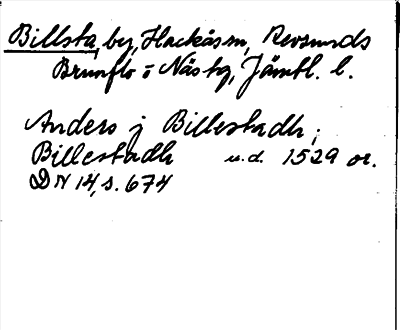 Billsta, by, Hackås sn, Revsunds
Brunflo o Näs tg, Jämtl. l.
Anders j Billestadh,
Billestadh u.d. 1529 or.
DN 14, s. 674